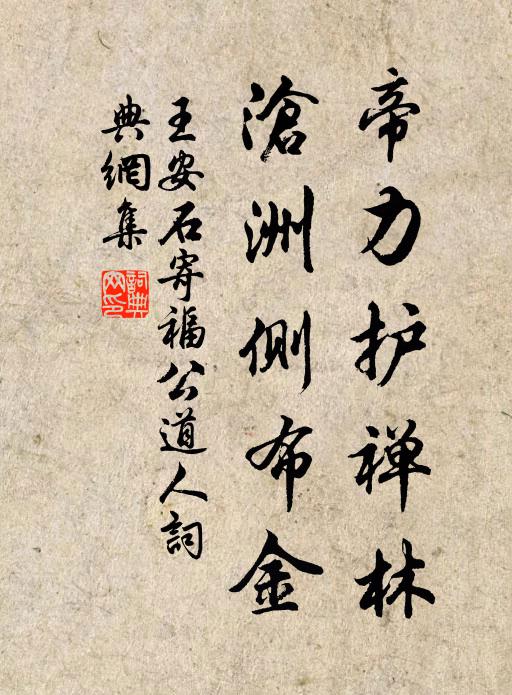 帝力护禅林
滄洲側布金
王安石寄福公道人詞
典網集
詞典網印